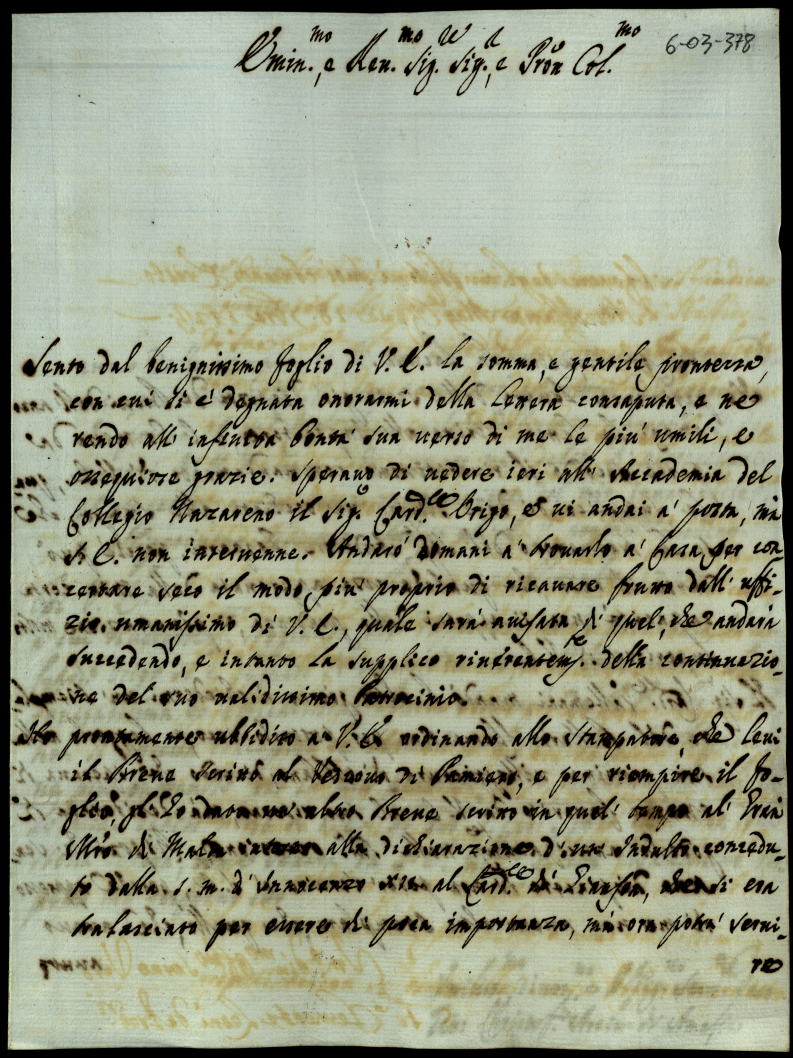 6-03-378
Emin.mo, e Rev.mo Sig.re Sig.r, e Pron Col.mo
Sento dal benignissimo foglio di V. E. la somma, e gentile prontezza,
con cui si é degnata onorarmi della lettera consaputa, e ne
rendo all' infinita bontá sua verso di me le piú umili, e
ossequiose grazie. Speravo di vedere ieri all' Accademia del
Collegio Nazareno il Sig.r Card.le Origo, e vi andai a' posta, má
S. E. non intervenne. Andaró domani a' trovarlo a' Casa, per con
certare seco il modo piú proprio di ricavare frutto dall' uffi-
zio umanissimo di V. E., quale sará avisata di quel, che andará
succedendo, e intanto la supplico riverentem.te della continuazio-
ne del suo validissimo Patrocinio.
Ho prontamente ubbidito a V. E. ordinando allo Stampatore, che levi
il Breve scritto al Vescovo di Pamiers, e per riempire il fo-
glio, gl' ho dato un altro Breve scritto in quel tempo al Gran
Mro di Malta intorno alla dichiarazione d' un Indulto concedu-
to dalla s. m. d' Innocenzo XII al Card.le di, che si era
tralasciato per essere di poca importanza, má ora potrá servi-
re